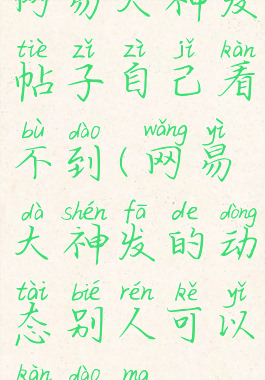 网易大神发
tiè zǐ zì jǐ kàn
帖子自己看
bù dào wǎng yì
不到(网易
dà shén fā de dòng
大神发的动
tài bié rén kě yǐ
态别人可以
kàn dào ma